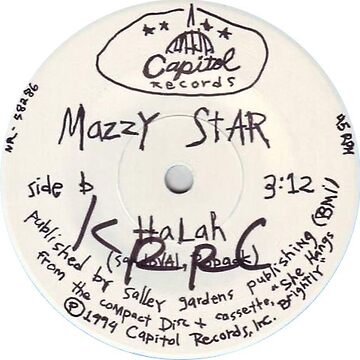 Capitol
Records
NR-58286
45 RPM
MAZZY StAR
side b
3:12
HaLah
(SandoVAL, Roback)
KPPC
published by Salley gardens publishing (BMI)
From the compact Disc + cassette, "She Hangs Brightly"
©1994 Capitol Records, Inc.